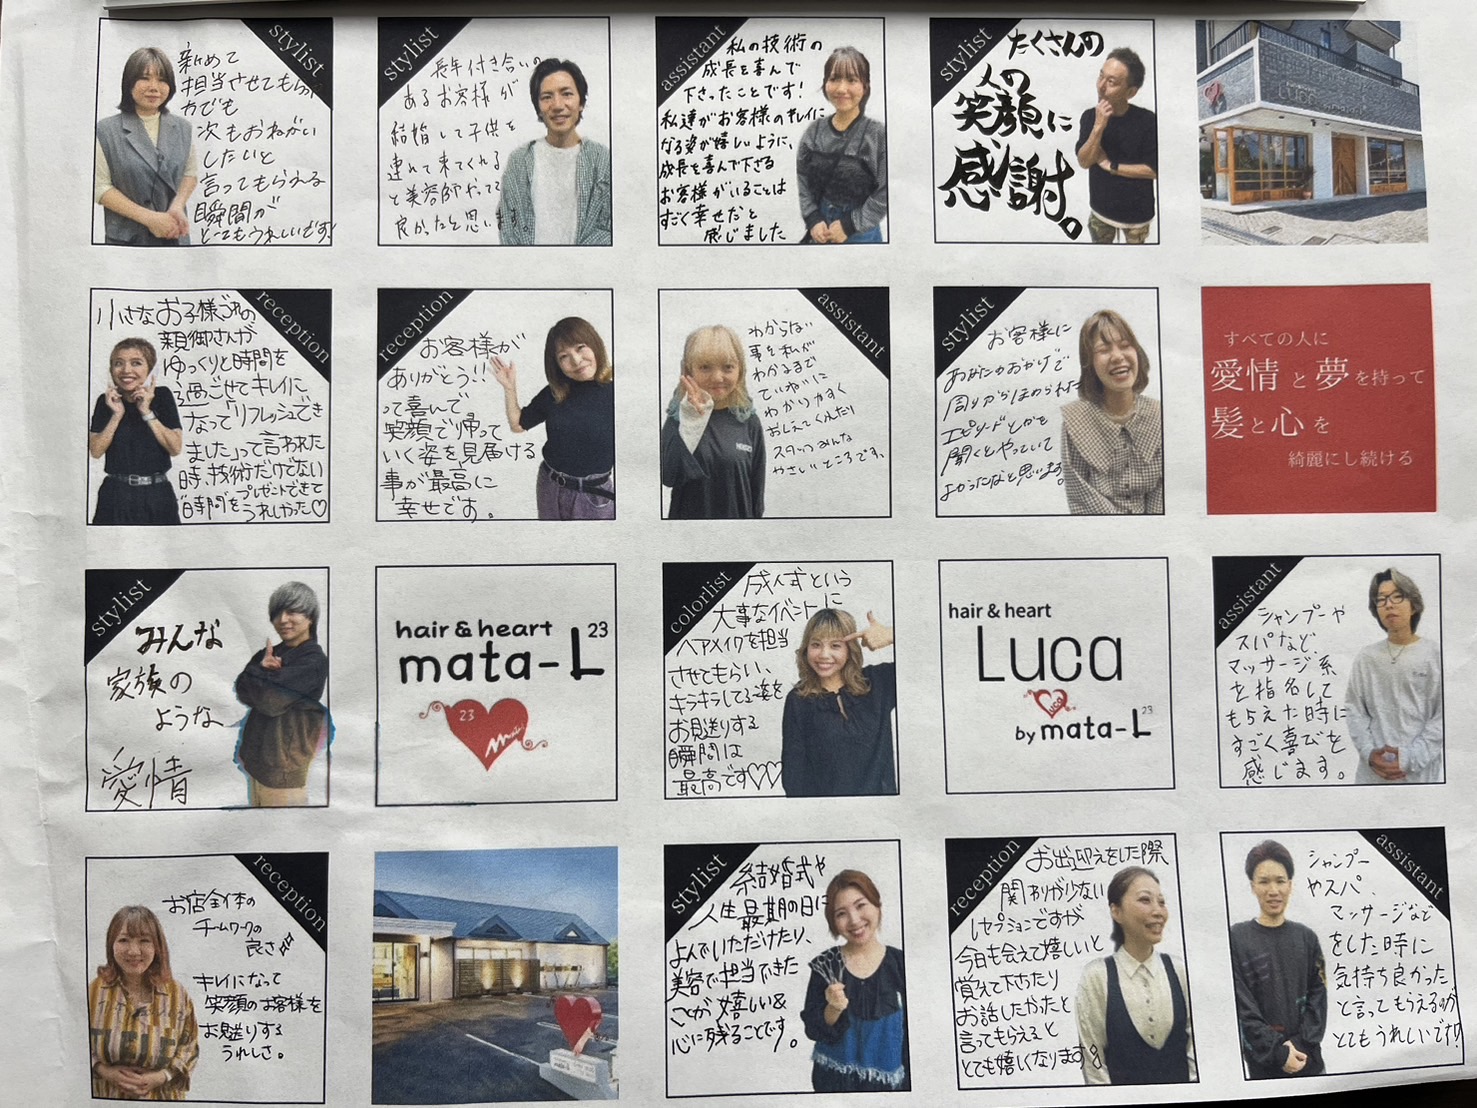 stylist
初めて
担当させてもらった
方でも
次もおねがい
したいと
言ってもらえる
瞬間が
とてもうれしいです!
stylist
長年付き合いの
あるお客様が
結婚して子供を
連れて来てくれる
と美容師やってて
良かったと思います。
assistant
私の技術の
成長を喜んで
下さったことです!
私達がお客様のキレイに
なる姿が嬉しいように、
成長を喜んで下さる
お客様がいることは
すごく幸せだと
感じました
stylist
たくさんの
人の
笑顔に
感謝。
LUCA
reception
小さなお子様づれの
親御さんが
ゆっくりと時間を
過ごせてキレイに
なって「リフレッシュでき
ました」って言われた
時、技術だけでない
"時間"をプレゼントできて
うれしかった♡
reception
お客様が
ありがとう!!
って喜んで、
笑顔で帰って
いく姿を見届ける
事が最高に
幸せです。
assistant
わからない
事を私が
わかるまで
ていねいに
わかりやすく
おしえてくれたり
スタッフみんな
やさしいところです。
stylist
お客様に
あなたのおかげで
周りからほめられた
エピソードとかを
聞くとやっていて
よかったなと思います。
すべての人に
愛情と夢を持って
髪と心を
綺麗にし続ける
stylist
みんな
家族の
ような
愛情
hair & heart
mata-L23
23
colorlist
成人式という
大事なイベントに
ヘアメイクを担当
させてもらい、
キラキラしてる姿を
お見送りする
瞬間は
最高です♡♡
hair & heart
Luca
Luca
by mata-L23
assistant
シャンプーや
スパなど、
マッサージ系
を指名して
もらえた時に
すごく喜びを
感じます。
reception
お店全体の
チームワークの
良さ♪
キレイになって
笑顔のお客様を
お見送りする
うれしさ。
stylist
結婚式や
人生最期の日に
よんでいただけたり、
美容で担当できた
ことが嬉しい&
心に残ることです。
reception
お出迎えをした際
関わりが少ない
レセプションですが
今日も会えて嬉しいと
覚えて下さったり
お話したかったと
言ってもらえると
とても嬉しくなります
assistant
シャンプー
やスパ、
マッサージなど
をした時に
気持ち良かった
と言ってもらえるのが
とてもうれしいです!